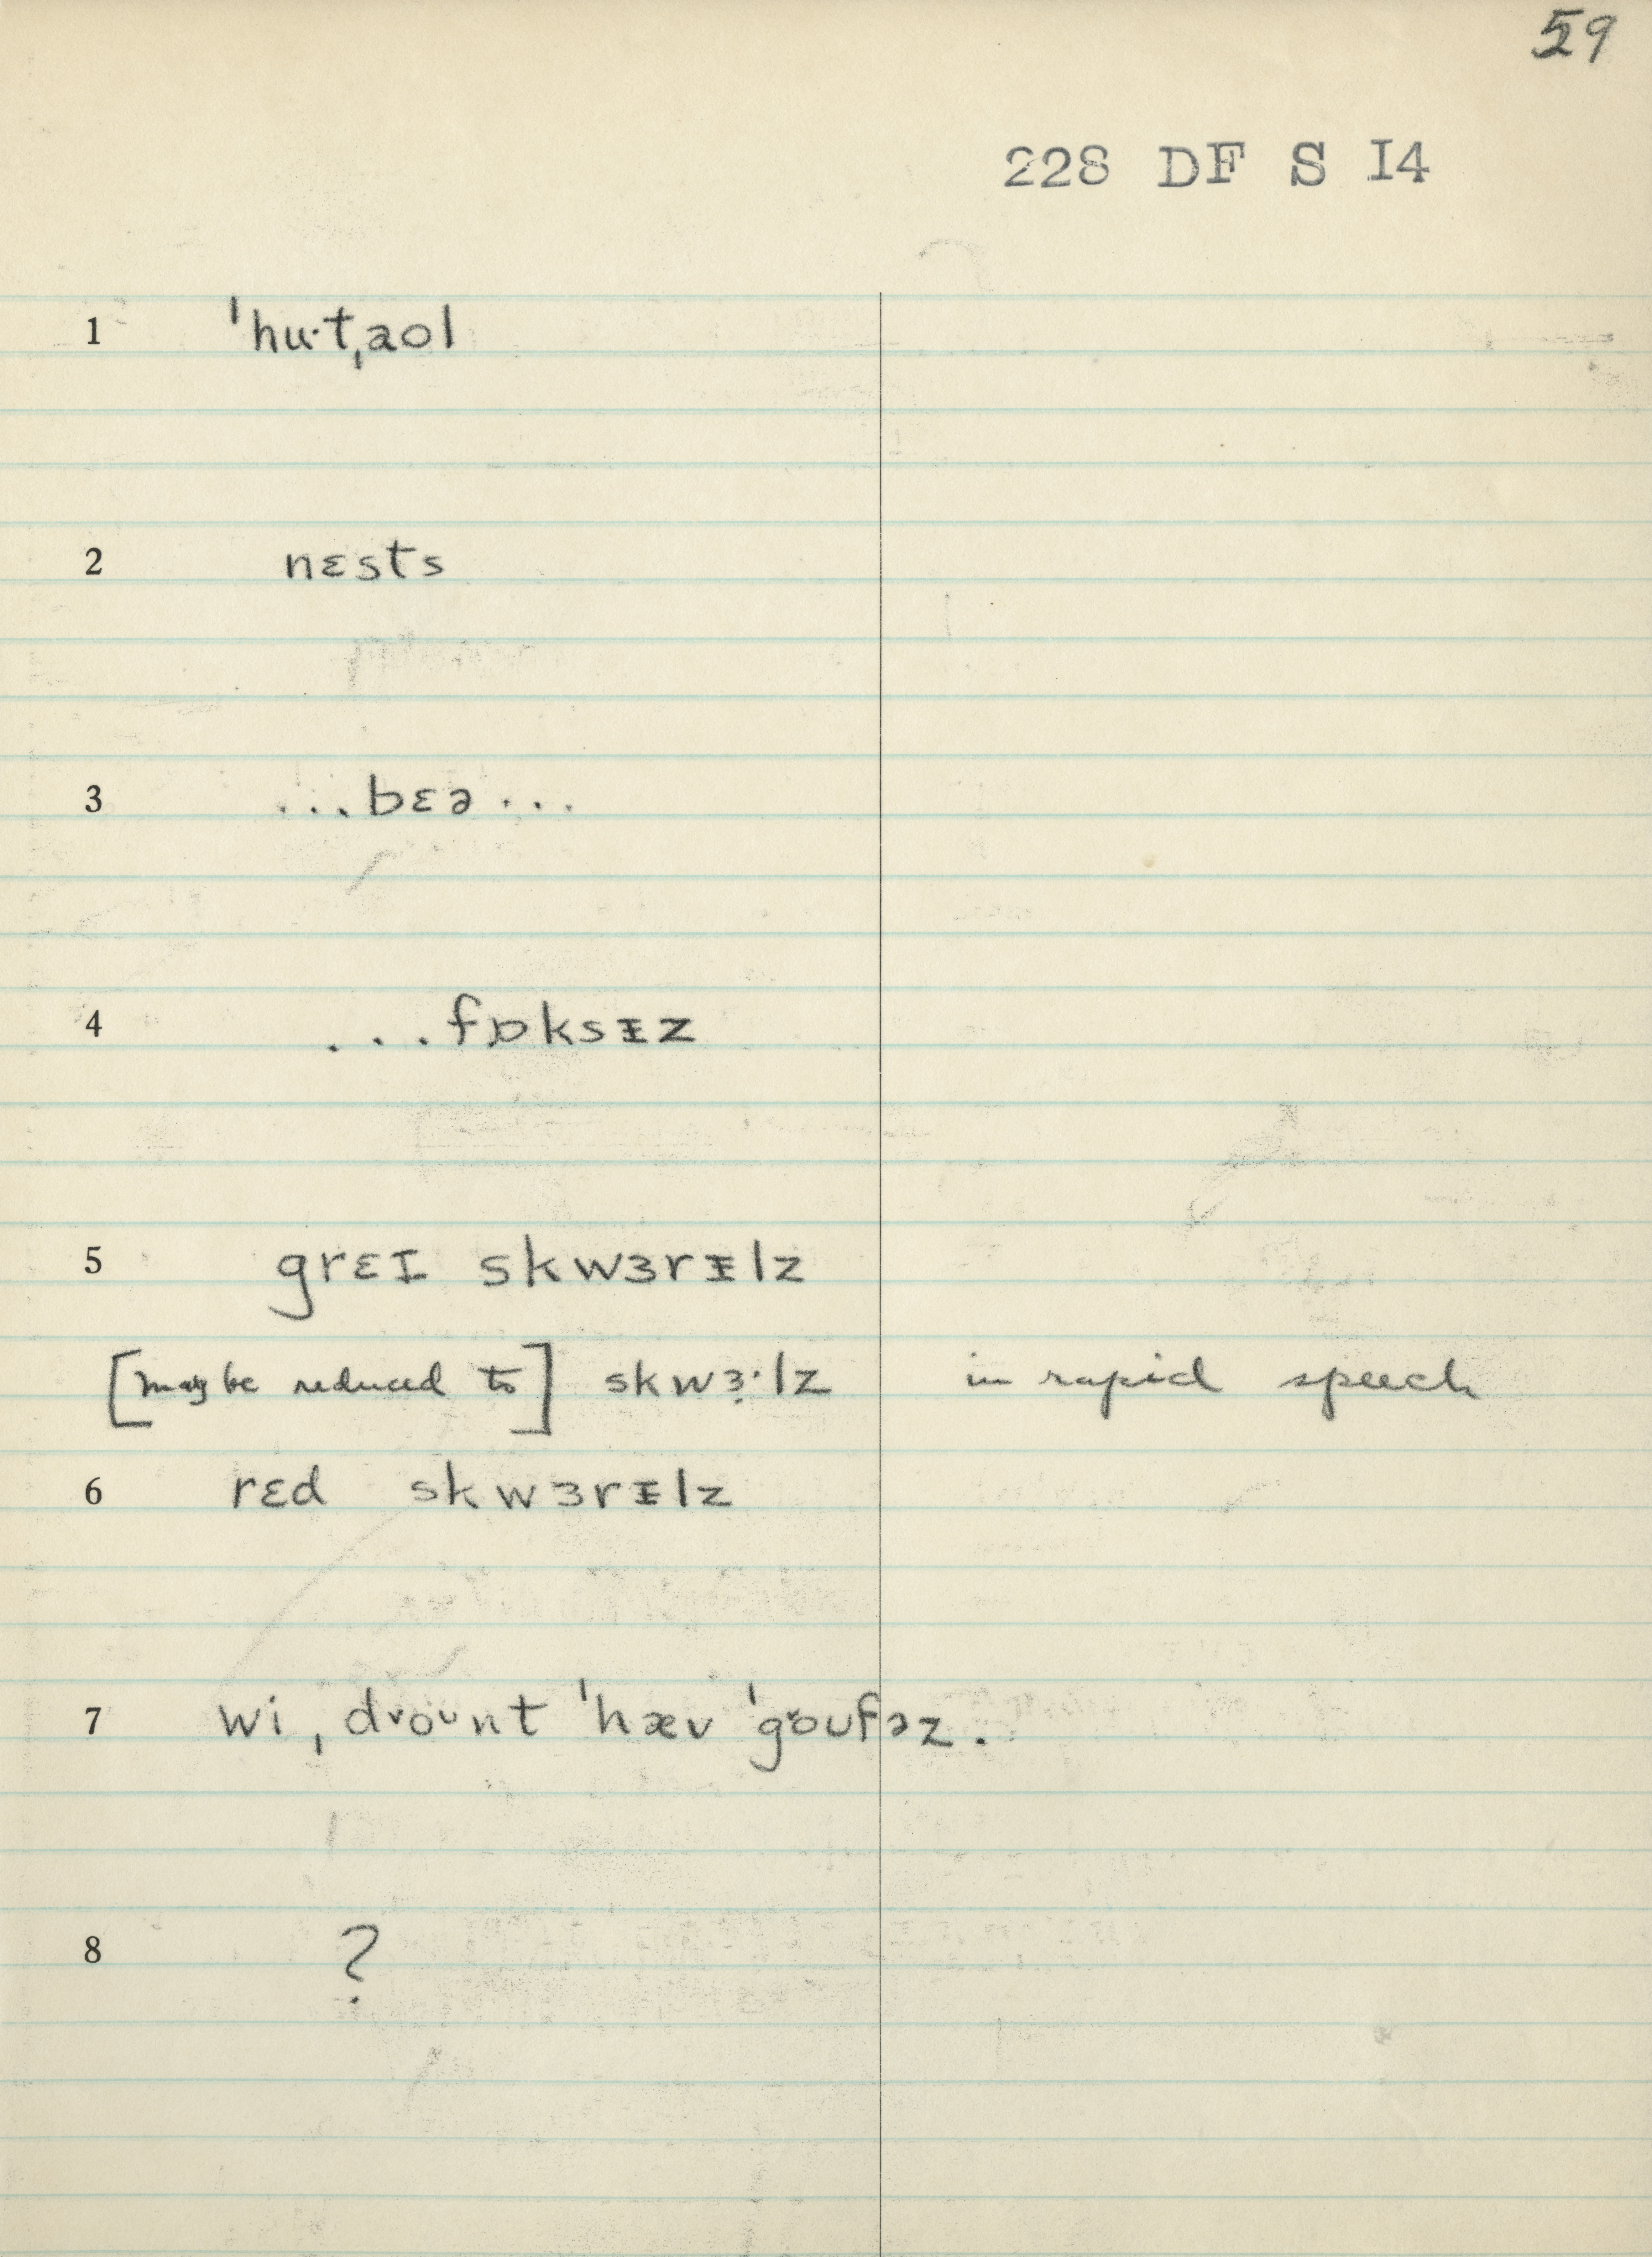 59
228 DF S I4
1 ˈhu·tˌaol
2 nɛsts
3 ...bɛə...
4 ...fɒksᵻz
5 grɛɪ skwɜrᵻlz
[may be reduced to] skwɜ̣·lz in rapid speech
6 rɛd skwɜrᵻlz
7 wi ˌdɤoᴜnt ˈhæv ˈgɤoᴜfəz.
8 ?